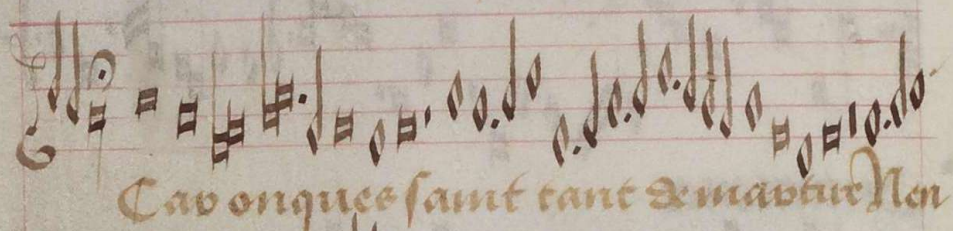 Car onques saint tant de martire Nen